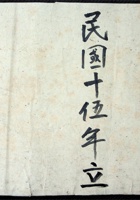 民國十伍年立